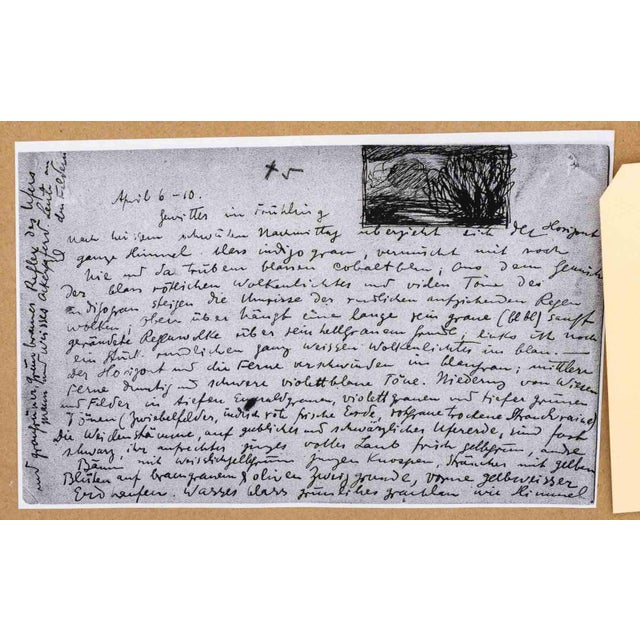 + 5
April 6-10.
Gewitter im Frühling
nach heissem schwülen Nachmittag überzieht sich der Horizont
ganze Himmel blass indigograu, vermischt mit noch
hie und da trübem blassen cobaltblau; Aus dem Gemisch
des blass rötlichen Wolkenlichtes und vielen Töne des
indigograu steigen die Umrisse der rundlichen aufziehenden Regen
wolken, oben über hängt eine lange sein graue (blbl) sanft
geränderte Regenwolke über sein hellgrauem ; links ist noch
ein Stück rundlichen ganz weissen Wolkenlichtes im blau.
Der Horizont und die Ferne verschwinden im blaugrau; mittlere
Ferne dunstig und schwere violettblaue Töne. Niederung von Wiesen
und Felder in tiefen Smaragdgrünen, violettgrauen und tiefer grünen
Tönen (Zwiebelfelder, indisch rote frische Erde, rotgraue trockene
Die Weidenstämme, auf gelbliches und schwärzliches Ufererde, sind fast
schwarz, ihr aufrechtes junges volles Laub frisch gelbgrün, andre
Bäum mit weisslichgelbgrün jungen Knospen, Sträucher mit gelben
Blüten auf braungrauem & oliven Zweiggrunde, vorne gelbweisser
Erdhaufen. Wasser blass grünliches graublau wie Himmel
und graugrüner braunes Reflex des Ufers
und weisses Ackerpferd Leute
den Feldern